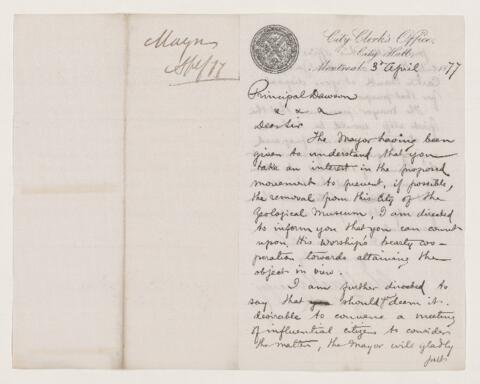 Mayor
Apl/77
City Clerk's Office,
City Hall,
Montreal 3d April 1877
Principal Dawson
& & &
Dear Sir
The Mayor having been
given to understand that you
take an interest in the proposed
movement to prevent, if possible,
the removal from this City of the
Geological Museum, I am directed
to inform you that you can count
upon His Worship's hearty coo-
peration towards attaining the
object in view.
I am further directed to
say that should deem it
desirable to convene a meeting
of influential citizens to consider
the matter, the Mayor will gladly